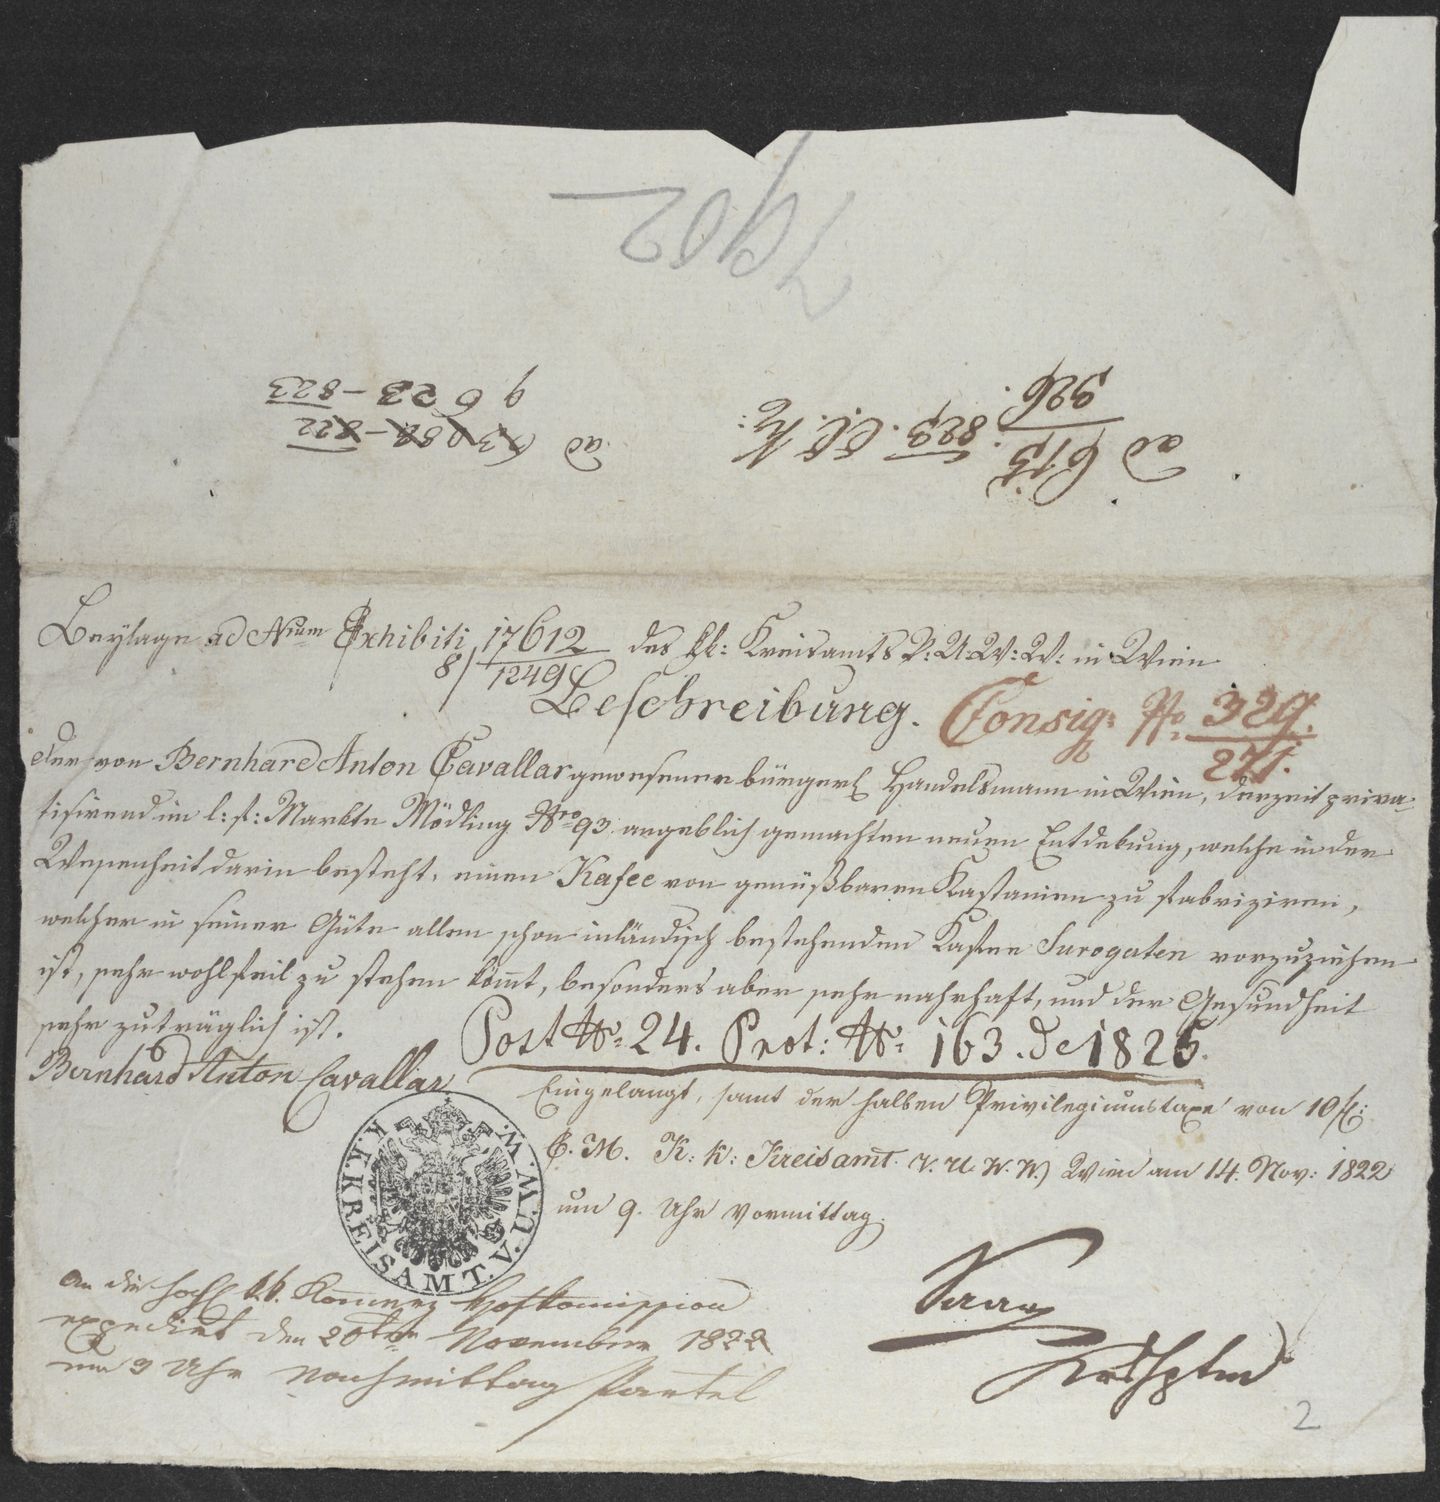 1902
ad 63082-822
9623-823
ad 613/926 823. C. C. Kz:
Beylage ad Nrum Exhibiti 17612 des kk: Kreisamts V: U: W: W: in Wien
8/1249
Beschreibung. Consig: No. 329./271.
der von Bernhard Anton Cavallar gewesener bürgerl Handelsmann in Wien, derzeit priva-
tisirend im l: f: Markte Mödling Nro 93 angeblich gemachten neuen Entdekung, welche in der
Wesenheit darin besteht, einen Kafee von genüßbaren Kastanien zu fabriziren,
welcher in seiner Güte allen schon inländisch bestehenden Kaffee Surogaten vorzuziehen
ist, sehr wohlfeil zu stehen kömt, besonders aber sehr nahrhaft, und der Gesundheit
sehr zuträglich ist.
Post No. 24. Prot: No. 163. de 1825.
Bernhard Anton Cavallar
Eingelangt, samt der halben Privilegiumstaxe von 10 f:
C. M. K: k: Kreisamt V. U. W. W. Wien am 14. Nov: 1822
um 9. Uhr Vormittag.
K.K. KREISAMT. V.U.W.W.
an die hochl k.k. Komerz Hofkomission
expedirt den 20ten November 1822
um 3 Uhr Nachmittag
2